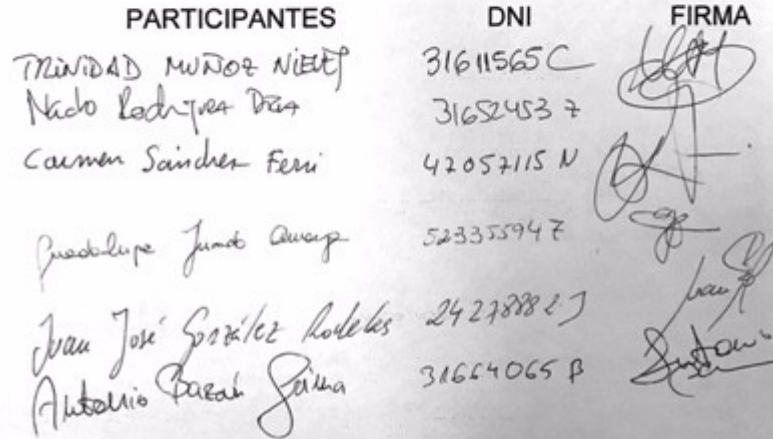 PARTICIPANTES DNI FIRMA
TRINIDAD MUÑOZ NIEVES 31611565C
Nacho Rodríguez 31652453 Z
Carmen Sánchez Ferri 42057115 N
Guadalupe Jurado 52335594Z
Juan José González 24278882J
Antonio Bazán 31664065 B